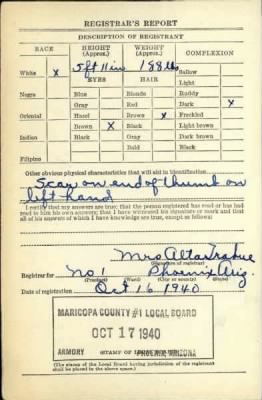 REGISTRAR'S REPORT
DESCRIPTION OF REGISTRANT
RACE HEIGHT (Approx.) WEIGHT (Approx.) COMPLEXION
White X 5 ft 11 in 188 lbs Sallow
EYES HAIR Light
Negro Blue Blonde Ruddy
Gray Red Dark X
Oriental Hazel Brown X Freckled
Brown X Black Light brown
Indian Black Gray Dark brown
Bald Black
Filipino
Other obvious physical characteristics that will aid in identification
Scar on end of thumb on
left hand
I certify that my answers are true; that the person registered has read or has had
read to him his own answers; that I have witnessed his signature or mark and that
all of his answers of which I have knowledge are true, except as follows:
Mrs Alta
(Signature of registrar)
Registrar for No 1 Phoenix Ariz.
(Precinct) (Ward) (City or county) (State)
Date of registration Oct 16 1940
MARICOPA COUNTY #1 LOCAL BOARD
OCT 17 1940
ARMORY PHOENIX, ARIZONA
(STAMP OF LOCAL BOARD)
(The stamp of the Local Board having jurisdiction of the registrant
shall be placed in the above space.)